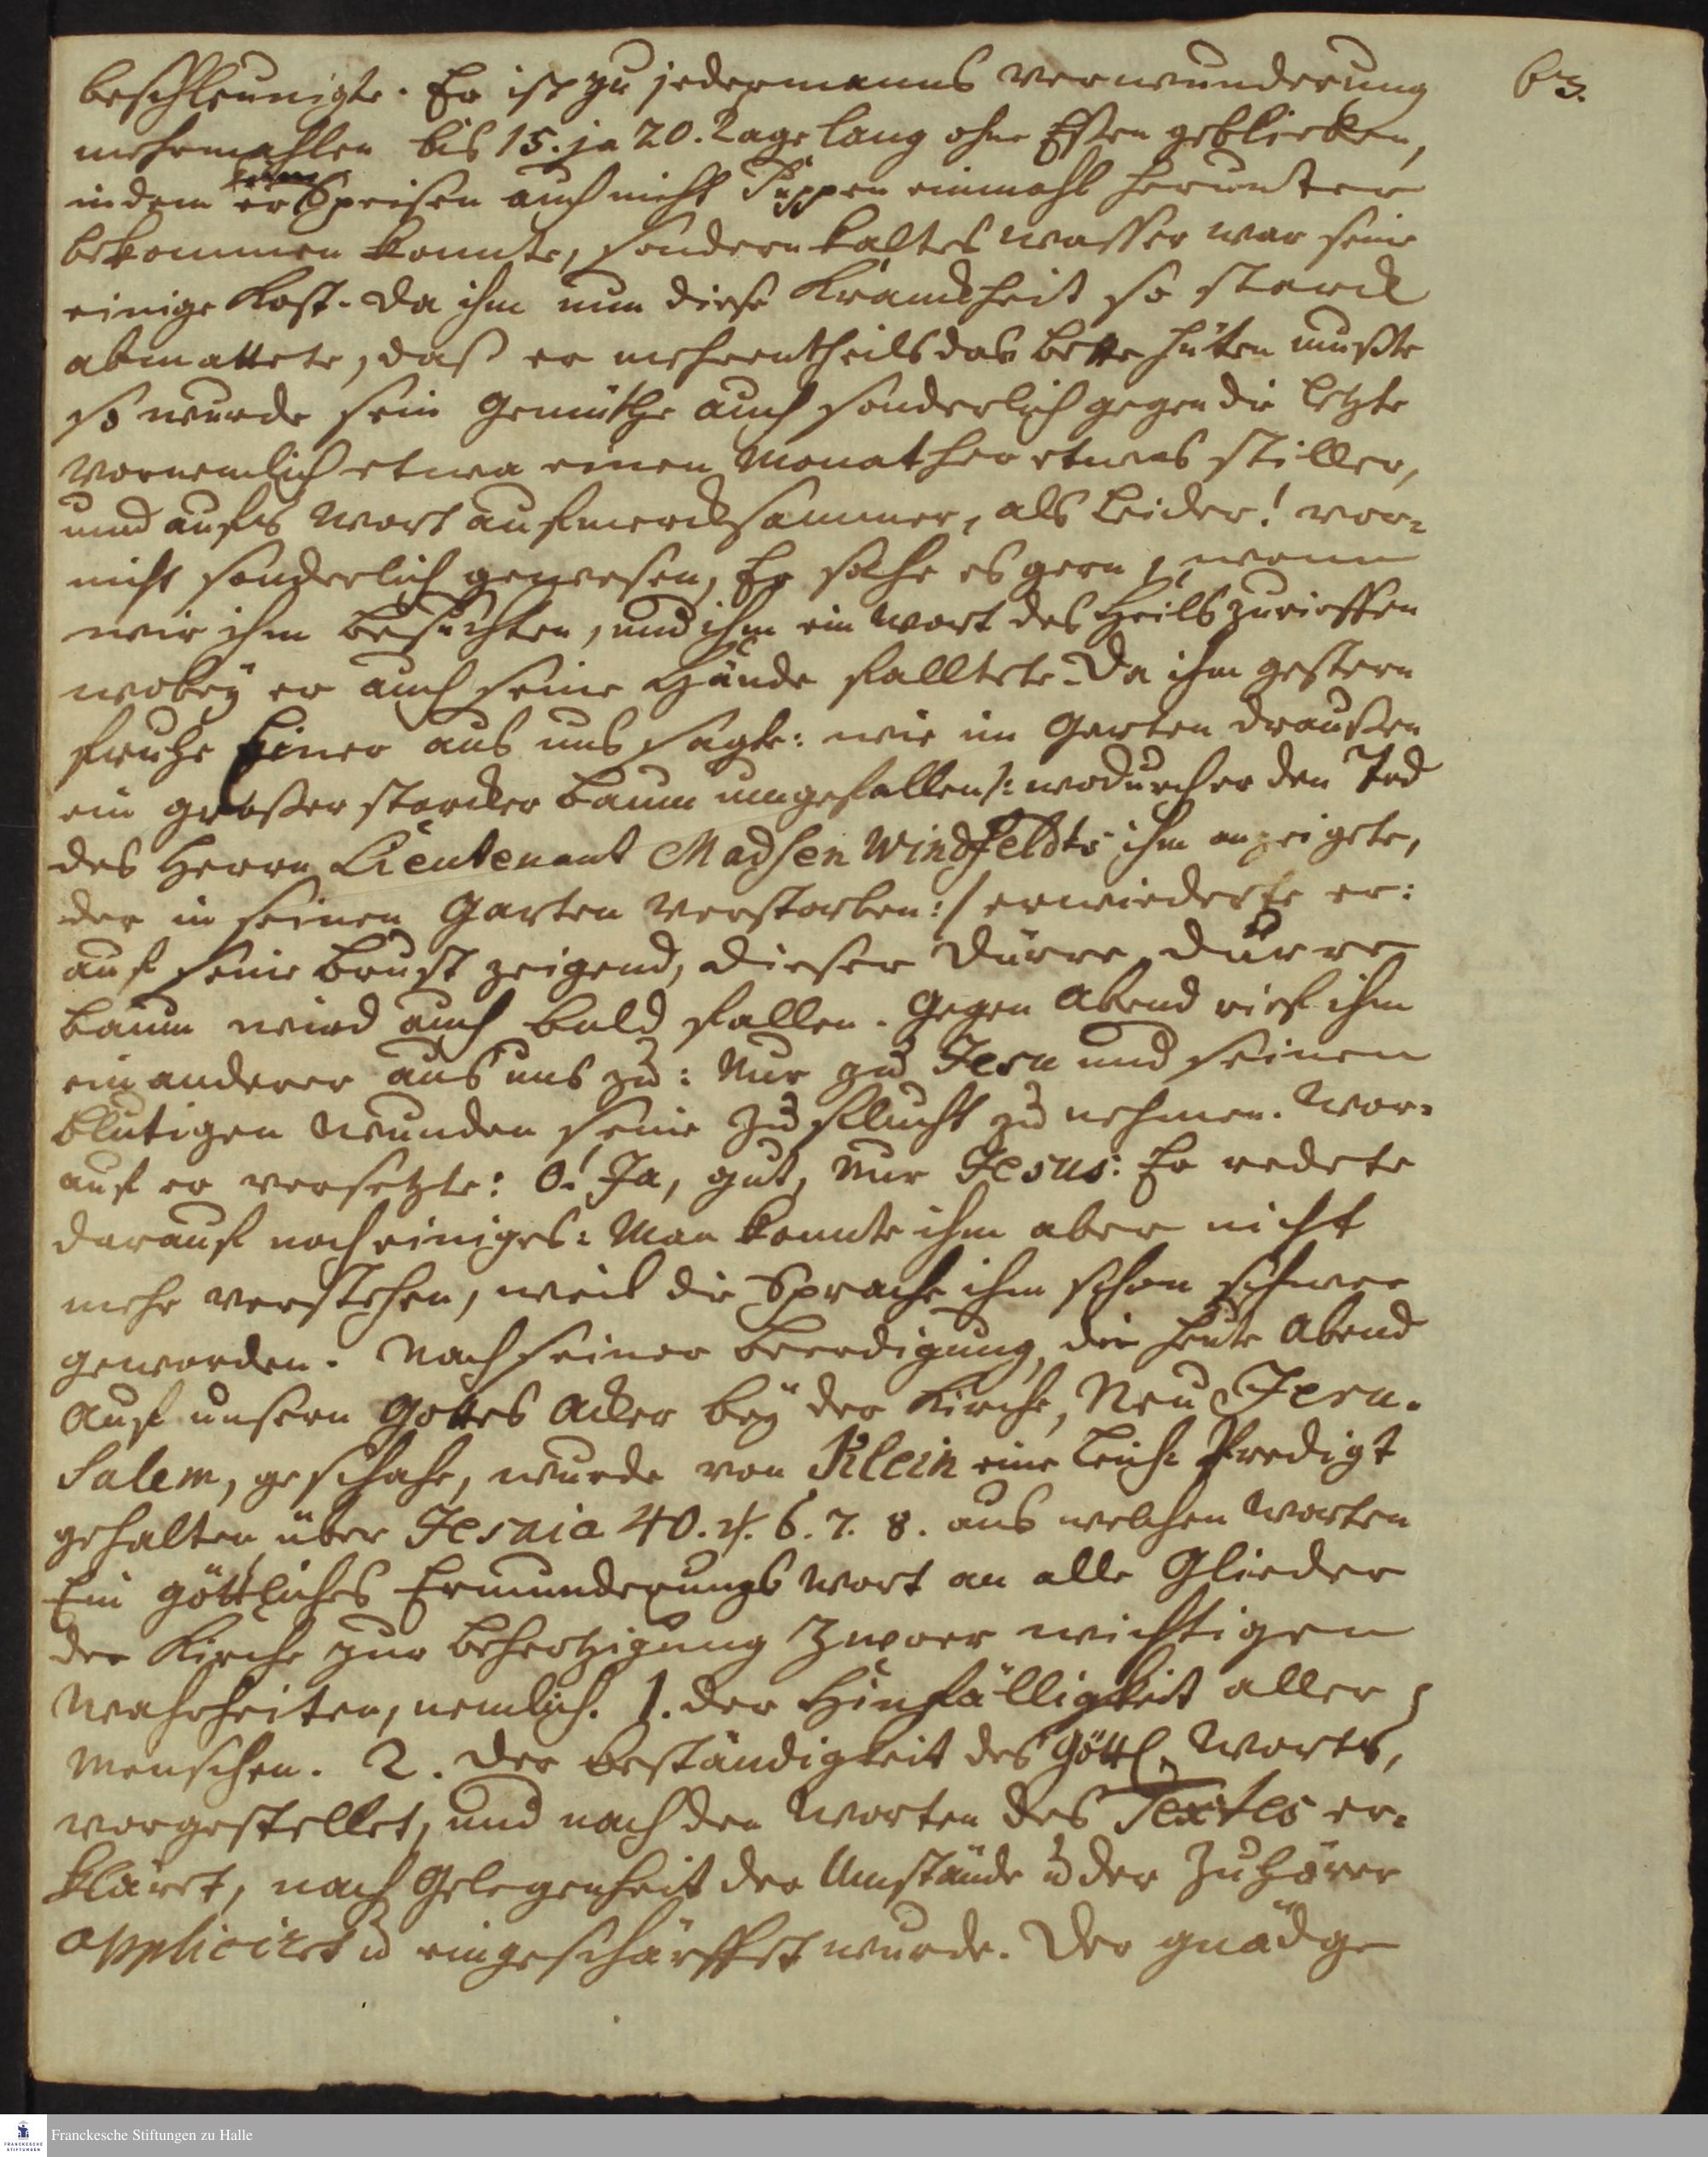 63.
beschleunigte. Er ist zu jedermanns Verwunderung
mehrmahlen bis 15. ja 20. Tage lang ohne Eßen geblieben,
indem er keine Speisen auch nicht Suppen einmahl herunter
bekommen konnte, sondern kaltes wasser war seine
einige Kost. Da ihn nun diese Kranckheit so starck
abmattete, daß er mehrentheils das bette hüten mußte
so wurde sein Gemüthe auch sonderlich gegen die letzte
vornemlich etwa einen Monat her etwas stiller,
und aufs Wort aufmercksammer, als leider! vor-
nicht sonderlich gewesen, Er sahe es gern, wenn
wir ihn besuchten, und ihm ein Wort des Heils zurieffen
wobey er auch seine Hände falltete. Da ihm gestern
fruhe Einer aus uns sagte: wie im Garten draußen
ein großer starcker baum umgefallen /: wodurch er den Tod
des Herrn Lieutenant Madsen Windfeldts ihm anzeigete,
der in seinen Garten verstorben :/ erwiederte er:
auf seine brust zeigend, dieser dürre, dürre
baum wird auch bald fallen. Gegen Abend rief ihm
ein anderer aus uns zu: Nur zu Jesu und seinen
blutigen Wunden seine Zuflucht zu nehmen. Wor-
auf er versetzte: O! Ja, gut, Nur Jesus: Er redete
darauf noch einiges: Man konnte ihn aber nicht
mehr verstehen, weil die Sprache ihm schon schwer
geworden. Nach seiner beerdigung, die heute Abend
auf unsern Gottes Acker bey der Kirche, Neu Jeru-
salem, geschahe, wurde von Klein eine Leich-Predigt
gehalten über Jesaia 40. v. 6. 7. 8. aus welchen Worten
Ein göttliches Ermunderungs Wort an alle Glieder
der Kirche zur behertzigung zweer wichtigen
Wahrheiten, nemlich. 1. der Hinfälligkeit aller
Menschen. 2. der beständigkeit des Göttl. Worts,
vorgestellet, und nach den Worten des Textes er-
kläret, nach Gelegenheit der Umstände u der Zuhörer
appliciret u eingeschärffet wurde. Der gnädge
FRANCKESCHE
STIFTUNGEN
Franckesche Stiftungen zu Halle